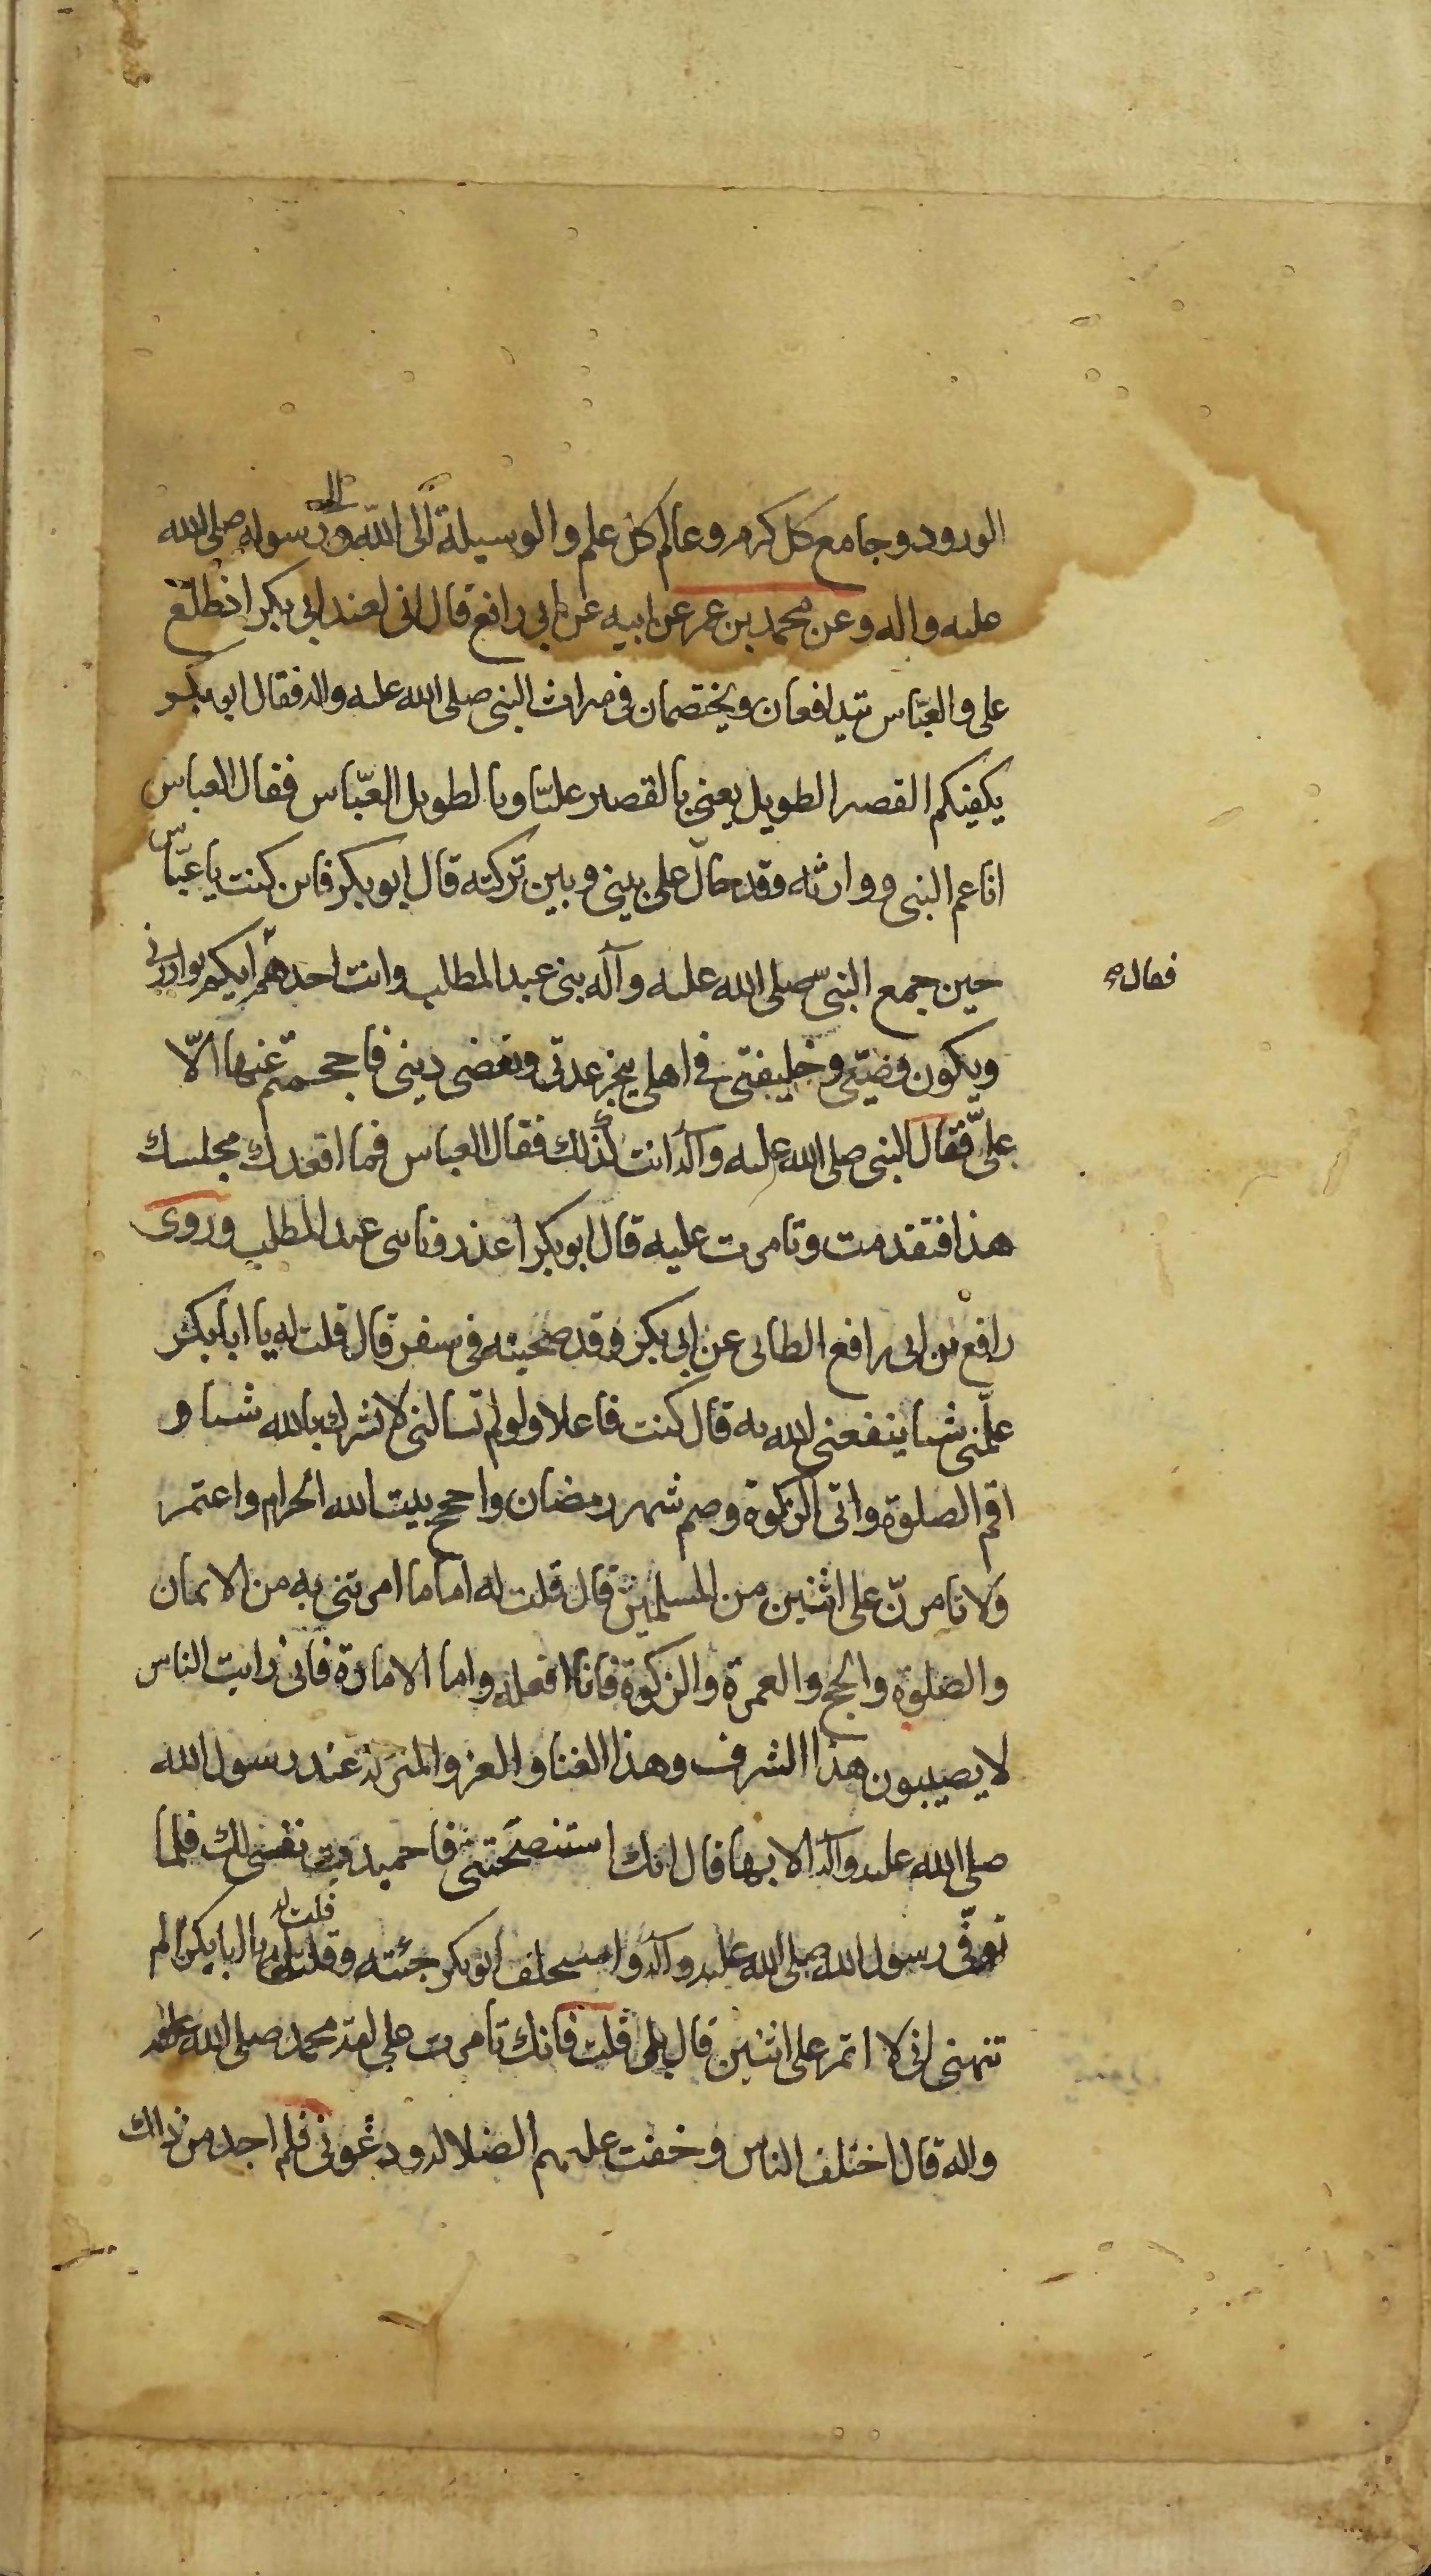 الورود وجامع كل كرم وعالم كل علم والوسيلة الى الله والى رسوله صلى الله
عليه واله وعن محمد بن عمر عن ابيه عن ابى رافع قال انى لعند ابى بكر اذ طلع
على والعبّاس يتدافعان ويختصمان فى ميراث النبى صلى الله عليه واله فقال ابو بكر
يكفيكم القصير الطويل يعنى بالقصير عليّا وبالطويل العبّاس فقال العباس
انا عم النبى ووارثه وقد حال على بينى وبين تركته قال ابو بكر فاين كنت يا عبّاس
حين جمع النبى صلى الله عليه وآله بنى عبد المطلب وانت احدهم ايكم يوازرنى
فقال
ويكون وصيّى وخليفتى فى اهلى ينجز عدتى ويقضى دينى فاحجمتم عنها الّا
علىّ فقال النبى صلى الله عليه وآله انت كذلك فقال العباس فما اقعدك مجلسك
هذا فتقدمت وتامرت عليه قال ابو بكر اعذرونا بنى عبد المطلب وروى
رافع بن ابى رافع الطائى عن ابى بكر وقد صحبته فى سفر قال قلت له يا ابا بكر
علّمنى شيئا ينفعنى الله به قال كنت فاعلا ولو لم تسالنى لا تشرك بالله شيئا و
اقم الصلوة واتى الزكوة وصم شهر رمضان واحجج بيت الله الحرام واعتمر
ولا تامرنّ على اثنين من المسلمين قال قلت له اما ما امرتنى به من الايمان
والصلوة والحج والعمرة والزكوة فانا افعله واما الامارة فانى رايت الناس
لا يصيبون هذا الشرف وهذا الغنا والعز والمنزلة عند رسول الله
صلى الله عليه وآله الا بها قال انك استنصحتنى فاجهدت نفسى لك فلما
توفّى رسول الله صلى الله عليه وآله واستخلف ابو بكر جئته وقلت له يا ابا بكر الم
تنهنى انى لا اتمر على اثنين قال بلى قلت فانك تامرت على امة محمد صلى الله عليه
واله قال اختلف الناس وخفت عليهم الضلالة ودعونى فلم اجد من ذلك